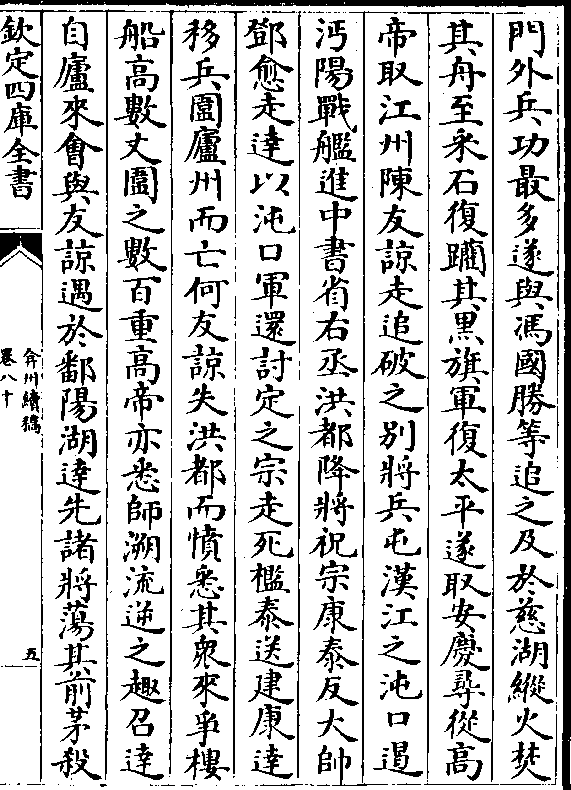 門外兵功最多遂與馮國勝等追之及於慈湖縱火焚
其舟至采石復躪其黑旗軍復太平遂取安慶尋從高
帝取江州陳友諒走追破之别將兵屯漢江之沌口遏
沔陽戰艦進中書省右丞洪都降將祝宗康泰反大帥
鄧愈走達以沌口軍還討定之宗走死檻泰送建康達
移兵圍廬州而亡何友諒失洪都而憤悉其衆來爭樓
船高數丈圍之數百重高帝亦悉師溯流逆之趣召達
自廬來會與友諒遇於鄱陽湖達先諸將蕩其前茅殺
欽定四庫全書
弇州續稿
卷八十
五